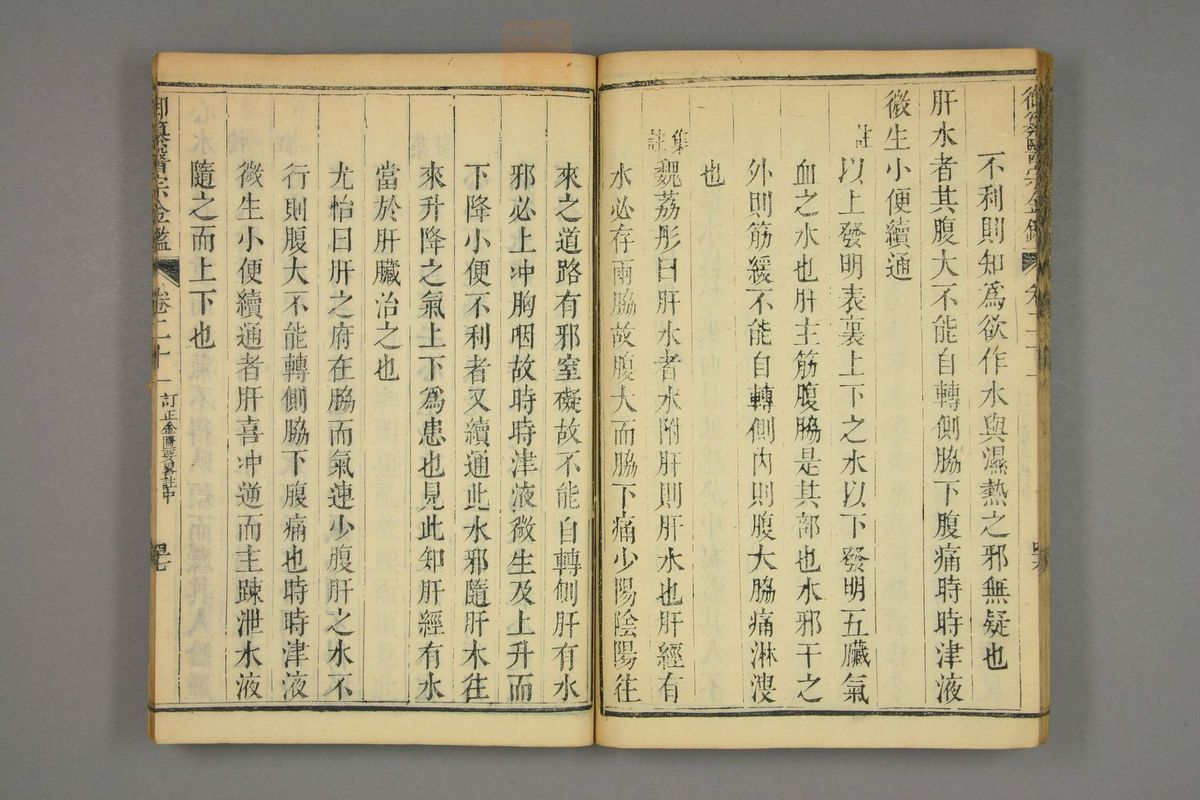 不利則知為欲作水與濕熱之邪無疑也
肝水者其腹大不能自轉側脇下腹痛時時津液
微生小便續通
註以上發明表裏上下之水以下發明五臟氣
血之水也肝主筋腹脇是其部也水邪干之
外則筋緩不能自轉側內則腹大脇痛淋溲
也
集註魏荔彤曰肝水者水附肝則肝水也肝經有
水必存兩脇故腹大而脇下痛少陽陰陽往
來之道路有邪窒礙故不能自轉側肝有水
邪必上冲胸咽故時時津液微生及上升而
下降小便不利者又續通此水邪隨肝木往
來升降之氣上下為患也見此知肝經有水
當於肝臟治之也
尤怡曰肝之府在脇而氣連少腹肝之水不
行則腹大不能轉側脇下腹痛也時時津液
微生小便續通者肝喜冲逆而主踈泄水液
隨之而上下也
御纂醫宗金鑑
卷二十一
訂正金匱要畧註中